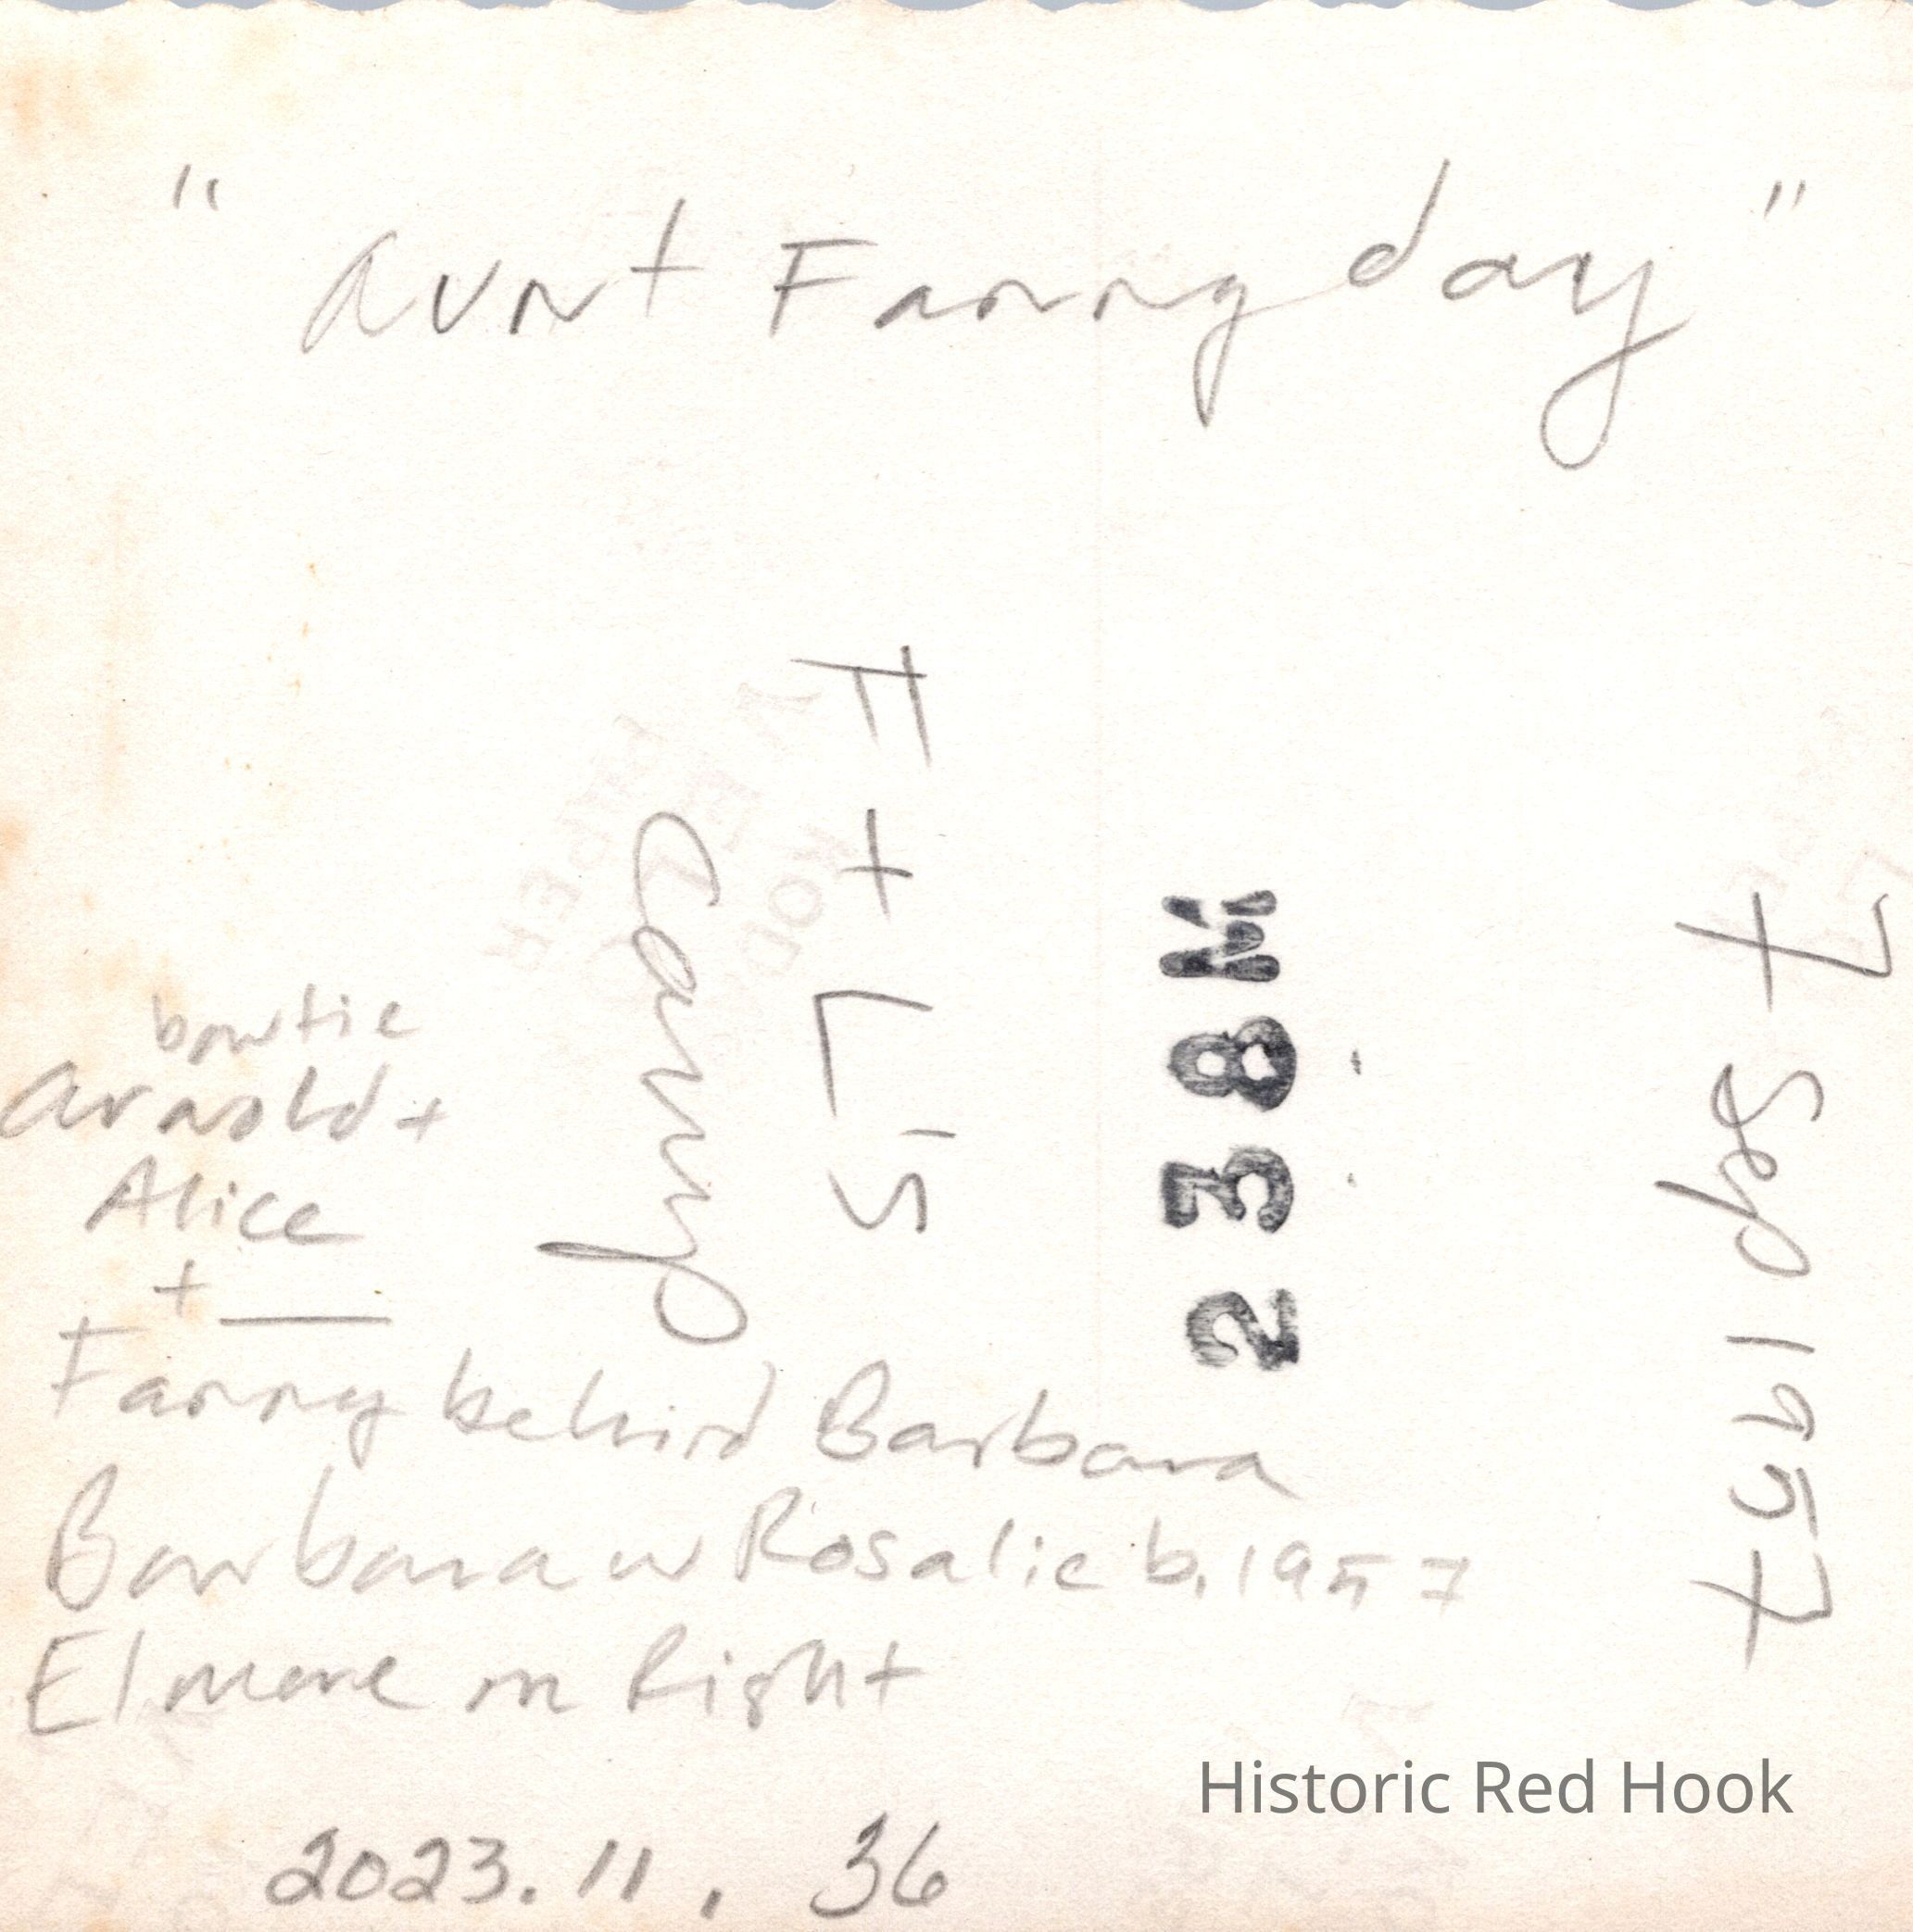 "Aunt Fanny day"
F + L's
Camp
238M
7 Sep 1957
bowtie
Arnold +
Alice
+ __
Fanny behind Barbara
Barbara w Rosalie b. 1957
Elmore on Right
2023.11.36
Historic Red Hook